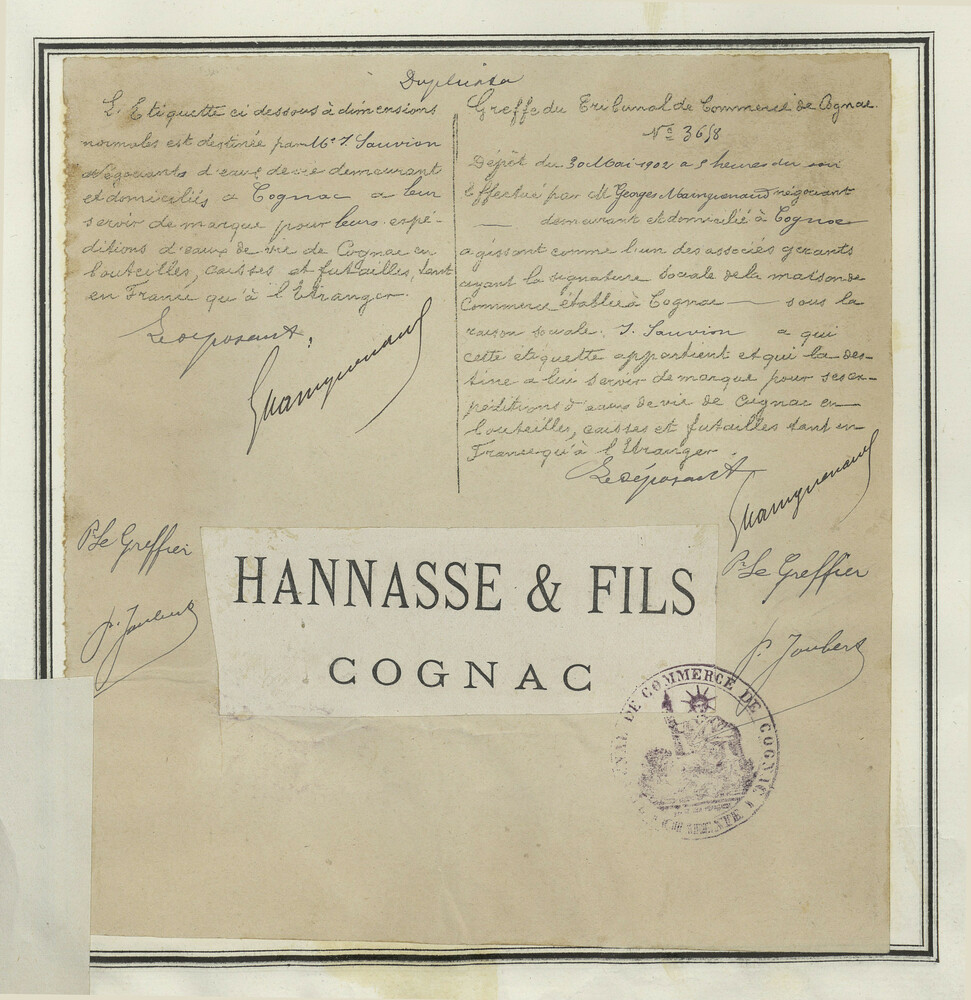 Duplicata
L'Etiquette ci dessous à dimensions
normales est destinée par Mr J. Sauvion
Négociants d'eaux de vie demeurant
et domiciliés à Cognac a leur
servir de marque pour leurs expé-
ditions d'eaux de vie de Cognac en
bouteilles, caisses et futailles, tant
en France qu'à l'Etranger.
Le déposant,
GMainguenaud
Greffe du Tribunal de Commerce de Cognac
No 3658
Dépôt du 30 Mai 1902 a 5 heures du soir
effectué par M Georges Mainguenaud négociant
demeurant et domicilié à Cognac
agissant comme l'un des associés gérants
ayant la signature sociale de la maison de
Commerce établie à Cognac — sous la
raison sociale. J. Sauvion a qui
cette étiquette appartient et qui la des-
tine a lui servir de marque pour ses ex-
péditions d'eaux de vie de Cognac en
bouteilles, caisses et futailles tant en
France qu'à l'Etranger.
Le déposant
GMainguenaud
Pr Le Greffier
P. Joubert
Pr Le Greffier
P. Joubert
HANNASSE & FILS
COGNAC
NAL DE COMMERCE DE COGNAC